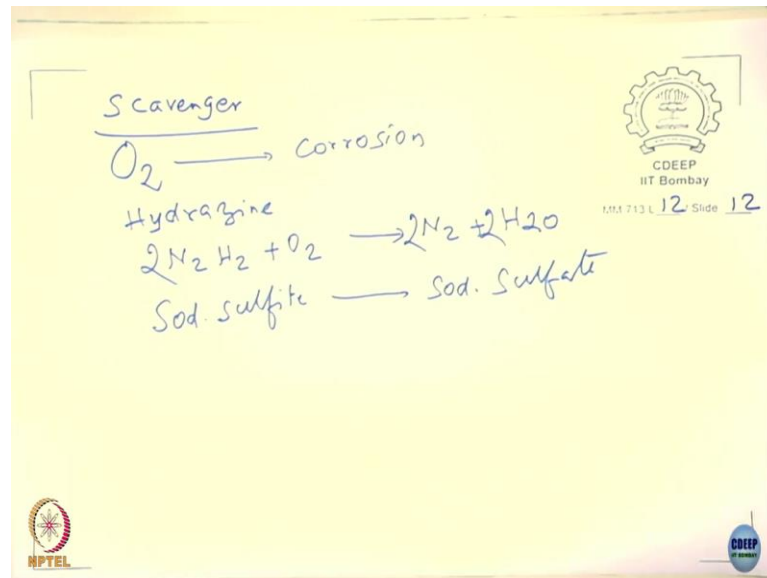 Scavenger
O₂ ⟶ Corrosion
Hydrazine
2N₂H₂ + O₂ ⟶ 2N₂ + 2H2O
Sod. Sulfite ⟶ Sod. Sulfate
CDEEP
IIT Bombay
MM 713 L 12 / Slide 12
NPTEL
CDEEP
IIT BOMBAY